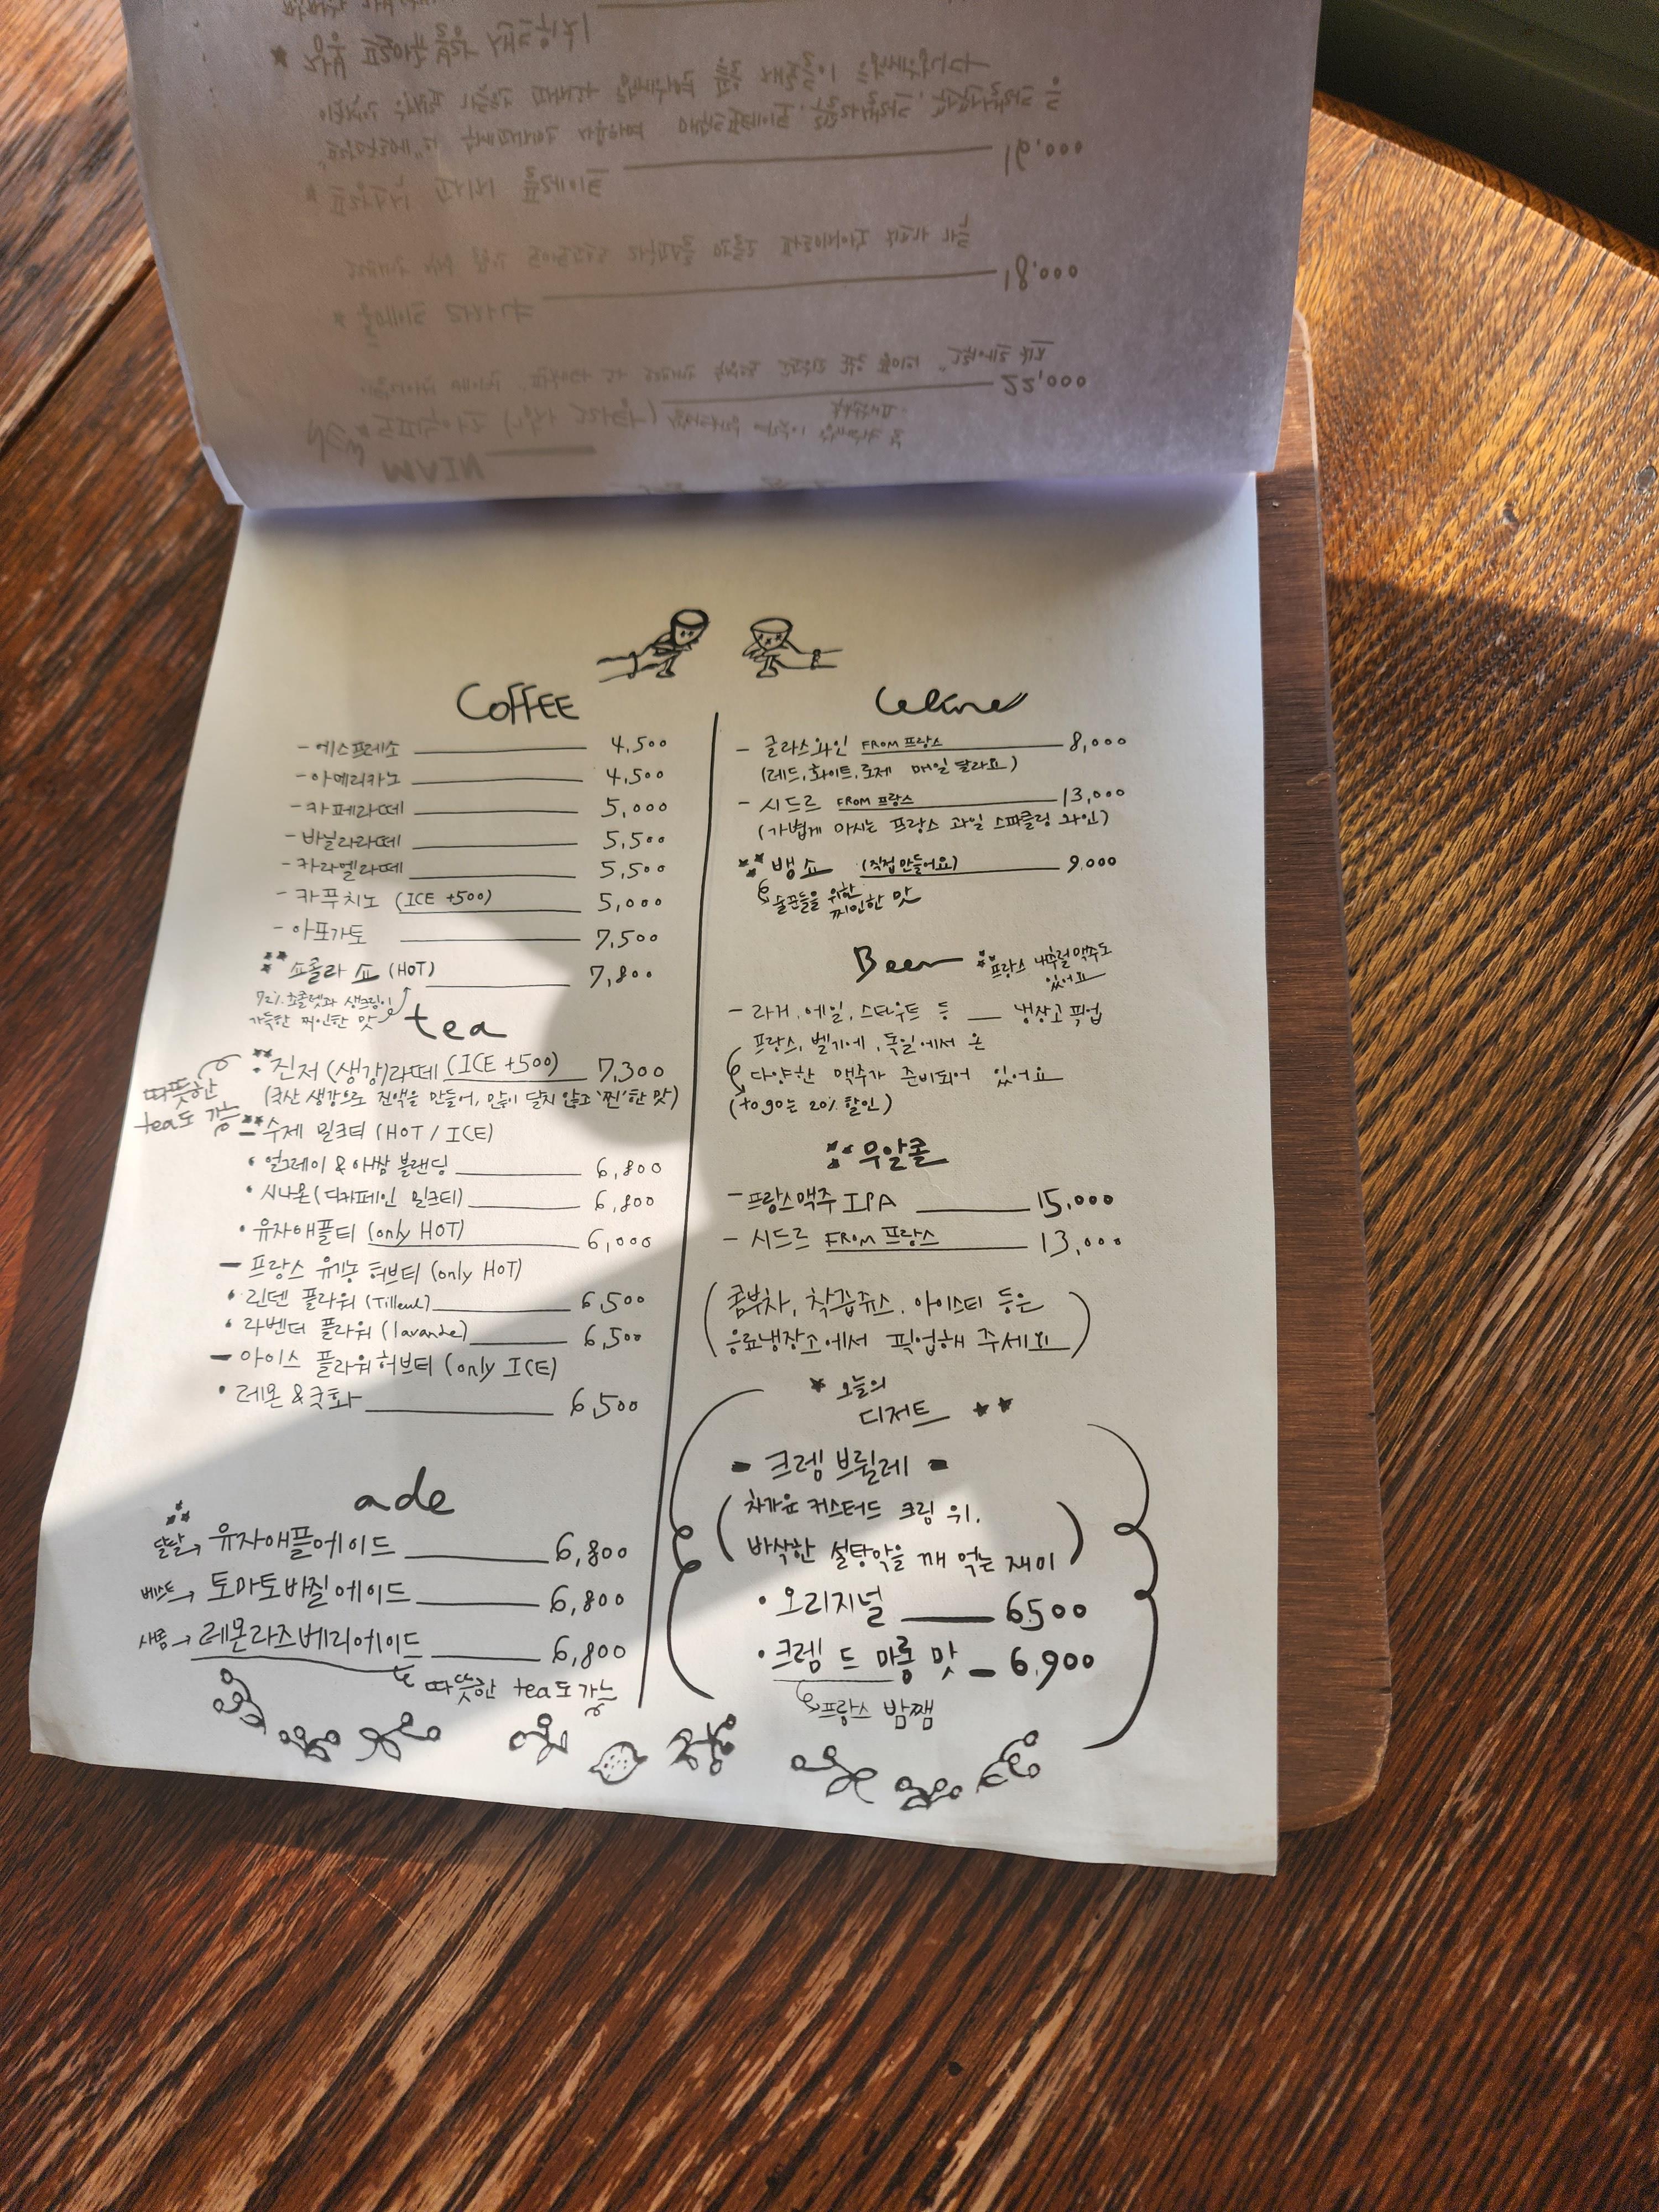 COFFEE
- 에스프레소 4,500
- 아메리카노 4,500
- 카페라떼 5,000
- 바닐라라떼 5,500
- 카라멜라떼 5,500
- 카푸치노 (ICE +500) 5,000
- 아포가토 7,500
쇼콜라 쇼 (HOT) 7,800
72% 초콜렛과 생크림이
가득한 찌인한 맛
tea
진저(생강)라떼 (ICE +500) 7,300
(국산 생강으로 진액을 만들어, 많이 달지 않고 '찐'한 맛)
따뜻한
tea도 가능
수제 밀크티 (HOT / ICE)
• 얼그레이 & 아쌈 블랜딩 6,800
• 시나몬(디카페인 밀크티) 6,800
• 유자애플티 (only HOT) 6,000
- 프랑스 유기농 허브티 (only HOT)
• 린덴 플라워 (Tilleul) 6,500
• 라벤더 플라워 (lavande) 6,500
- 아이스 플라워허브티 (only ICE)
• 레몬 & 국화 6,500
ade
달달→ 유자애플에이드 6,800
베스트→ 토마토바질에이드 6,800
새콤→ 레몬라즈베리에이드 6,800
따뜻한 tea도 가능
- 글라스와인 FROM 프랑스 8,000
(레드, 화이트, 로제 매일 달라요)
- 시드르 FROM 프랑스 13,000
(가볍게 마시는 프랑스 과일 스파클링 와인)
뱅쇼 (직접 만들어요) 9,000
술꾼들을 위한
찌인한 맛
Beer
프랑스 내추럴맥주도
있어요
- 라거, 에일, 스타우트 등 — 냉장고 픽업
프랑스, 벨기에, 독일에서 온
다양한 맥주가 준비되어 있어요
(to go는 20% 할인)
무알콜
- 프랑스맥주 IPA 15,000
- 시드르 FROM 프랑스 13,000
(콤부차, 착즙쥬스, 아이스티 등은
음료냉장고에서 픽업해 주세요)
오늘의
디저트
- 크렘 브륄레 -
(차가운 커스터드 크림 위,
바삭한 설탕막을 깨 먹는 재미)
• 오리지널 6,500
• 크렘 드 마롱 맛 6,900
프랑스 밤쨈